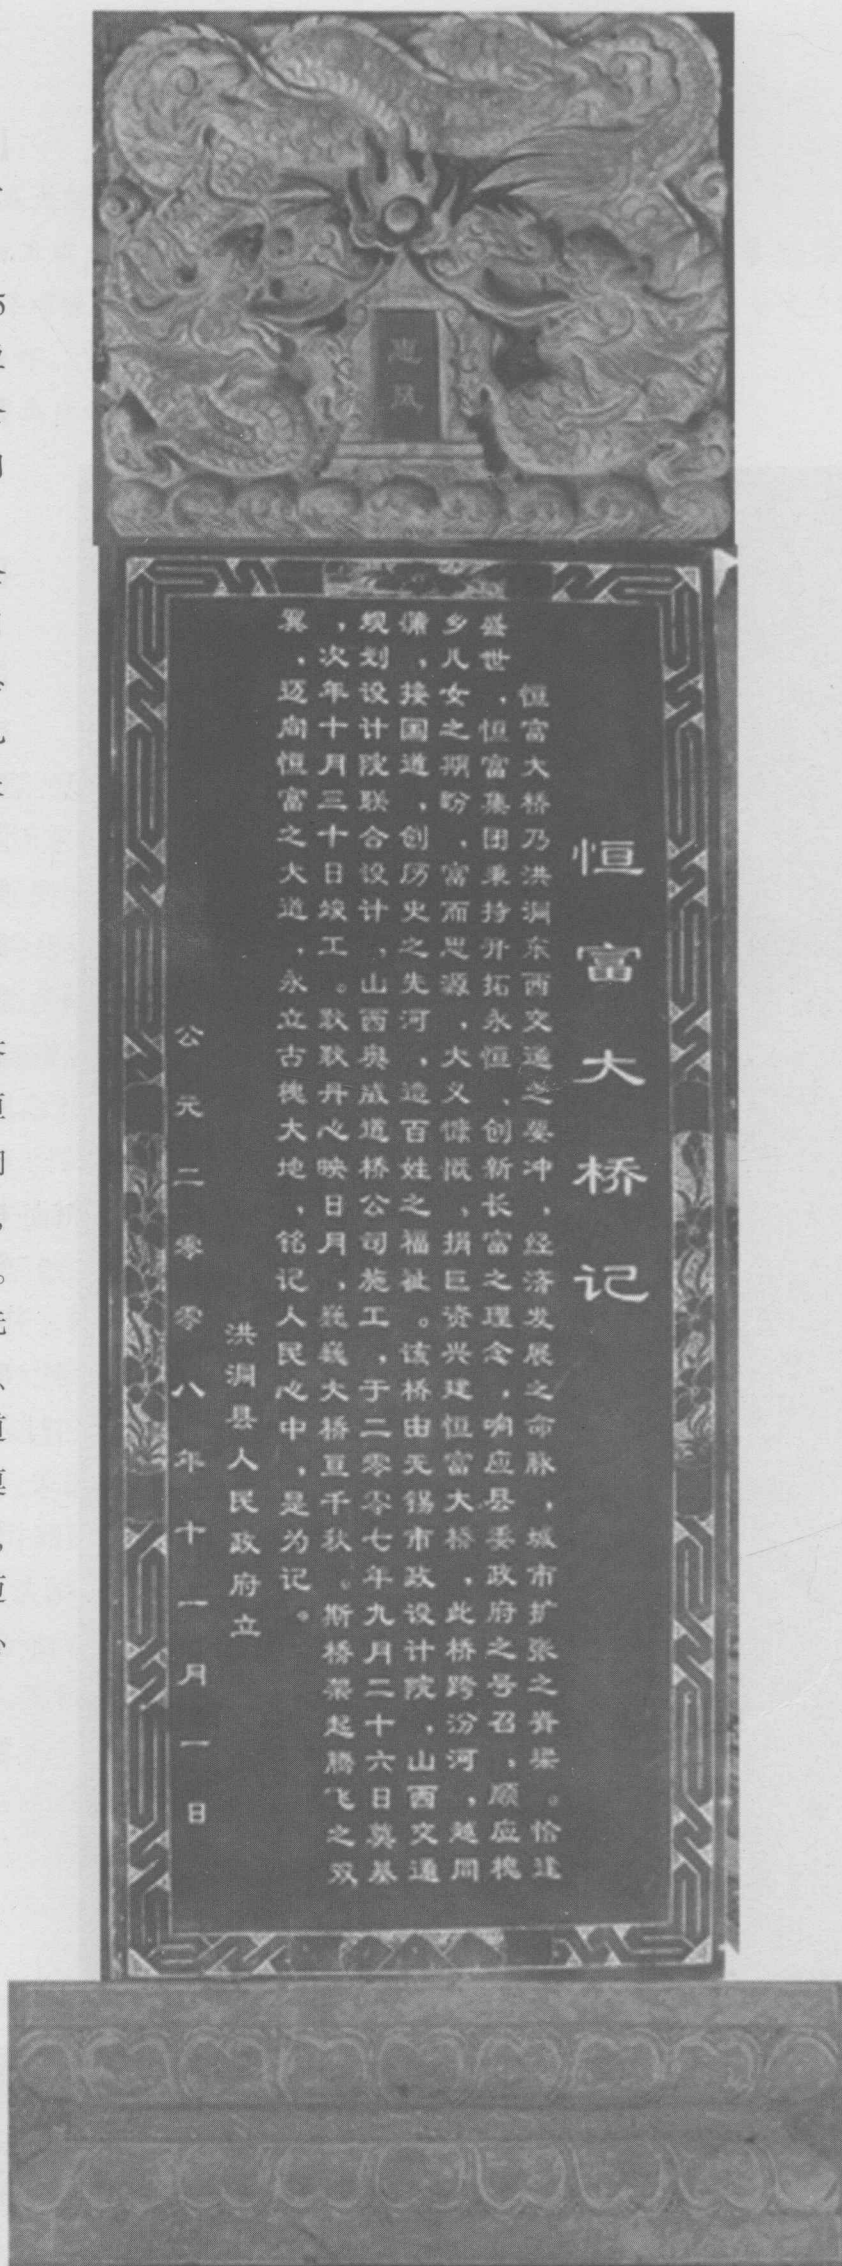 惠风
恒富大桥记
恒富大桥乃洪洞东西交通之要冲，经济发展之命脉，城市扩张之脊梁。恰逢
盛世，恒富集团秉持开拓永恒、创新长富之理念，响应县委政府之号召，顺应槐
乡儿女之期盼，富而思源，大义慷慨，捐巨资兴建恒富大桥，此桥跨汾河，越同
蒲，接国道，创历史之先河，造百姓之福祉。该桥由无锡市政设计院，山西交通
规划设计院联合设计，山西奥威道桥公司施工，于二零零七年九月二十六日奠基
，次年十月三十日竣工。耿耿丹心映日月，巍巍大桥亘千秋。斯桥架起腾飞之双
翼，迈向恒富之大道，永立古槐大地，铭记人民心中，是为记。
洪洞县人民政府立
公元二零零八年十一月一日